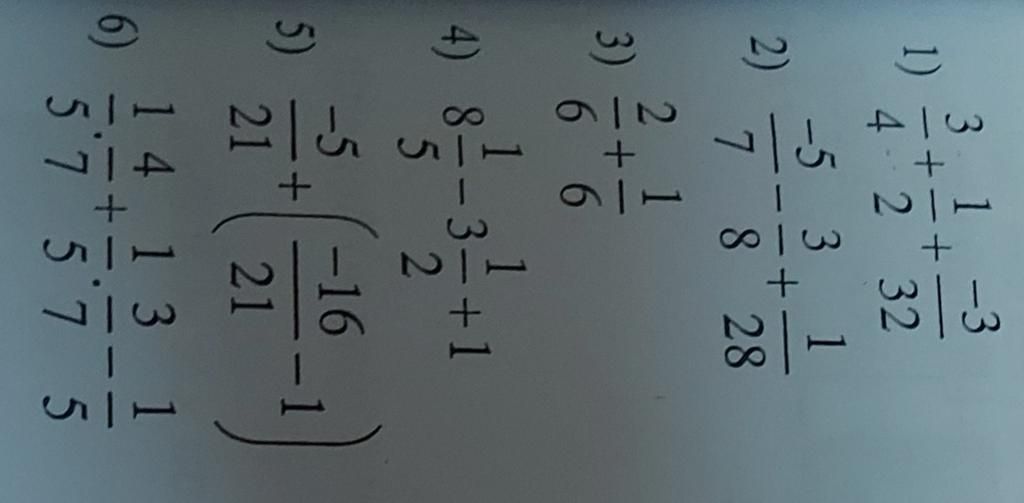 1) 3/4 + 1/2 + -3/32
2) -5/7 - 3/8 + 1/28
3) 2/6 + 1/6
4) 8 1/5 - 3 1/2 + 1
5) -5/21 + ( -16/21 - 1 )
6) 1/5 · 4/7 + 1/5 · 3/7 - 1/5